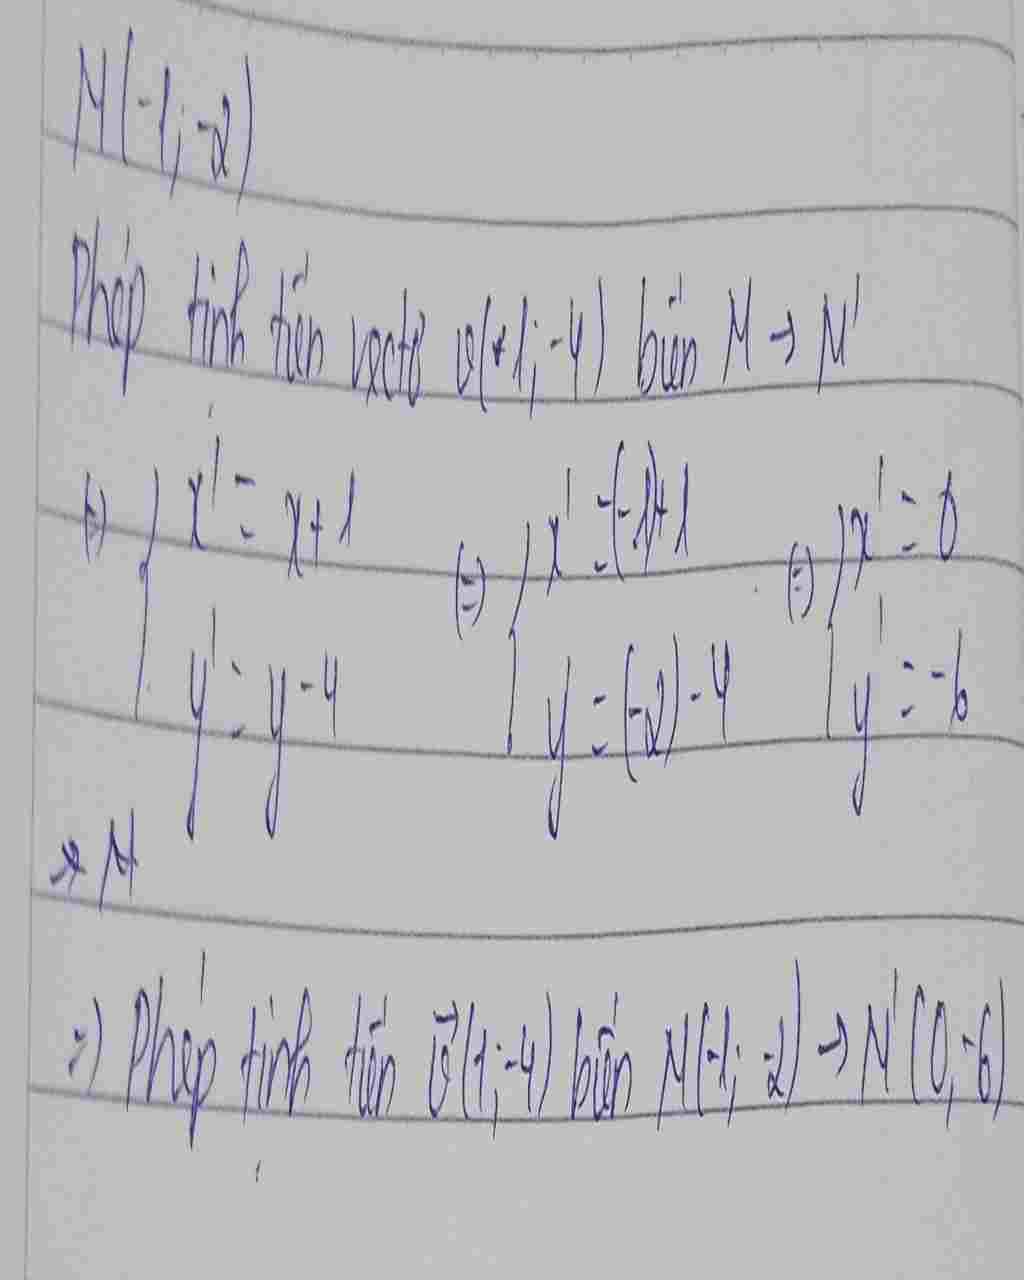 M(-1; -2)
Phép tịnh tiến vectơ v(+1; -4) biến M → M'
(=) { x' = x + 1 (=) { x' = (-1) + 1 (=) { x' = 0
y' = y - 4 y = (-2) - 4 y' = -6
→ M
=) Phép tịnh tiến v⃗(1; -4) biến M(-1; -2) → M'(0; -6)